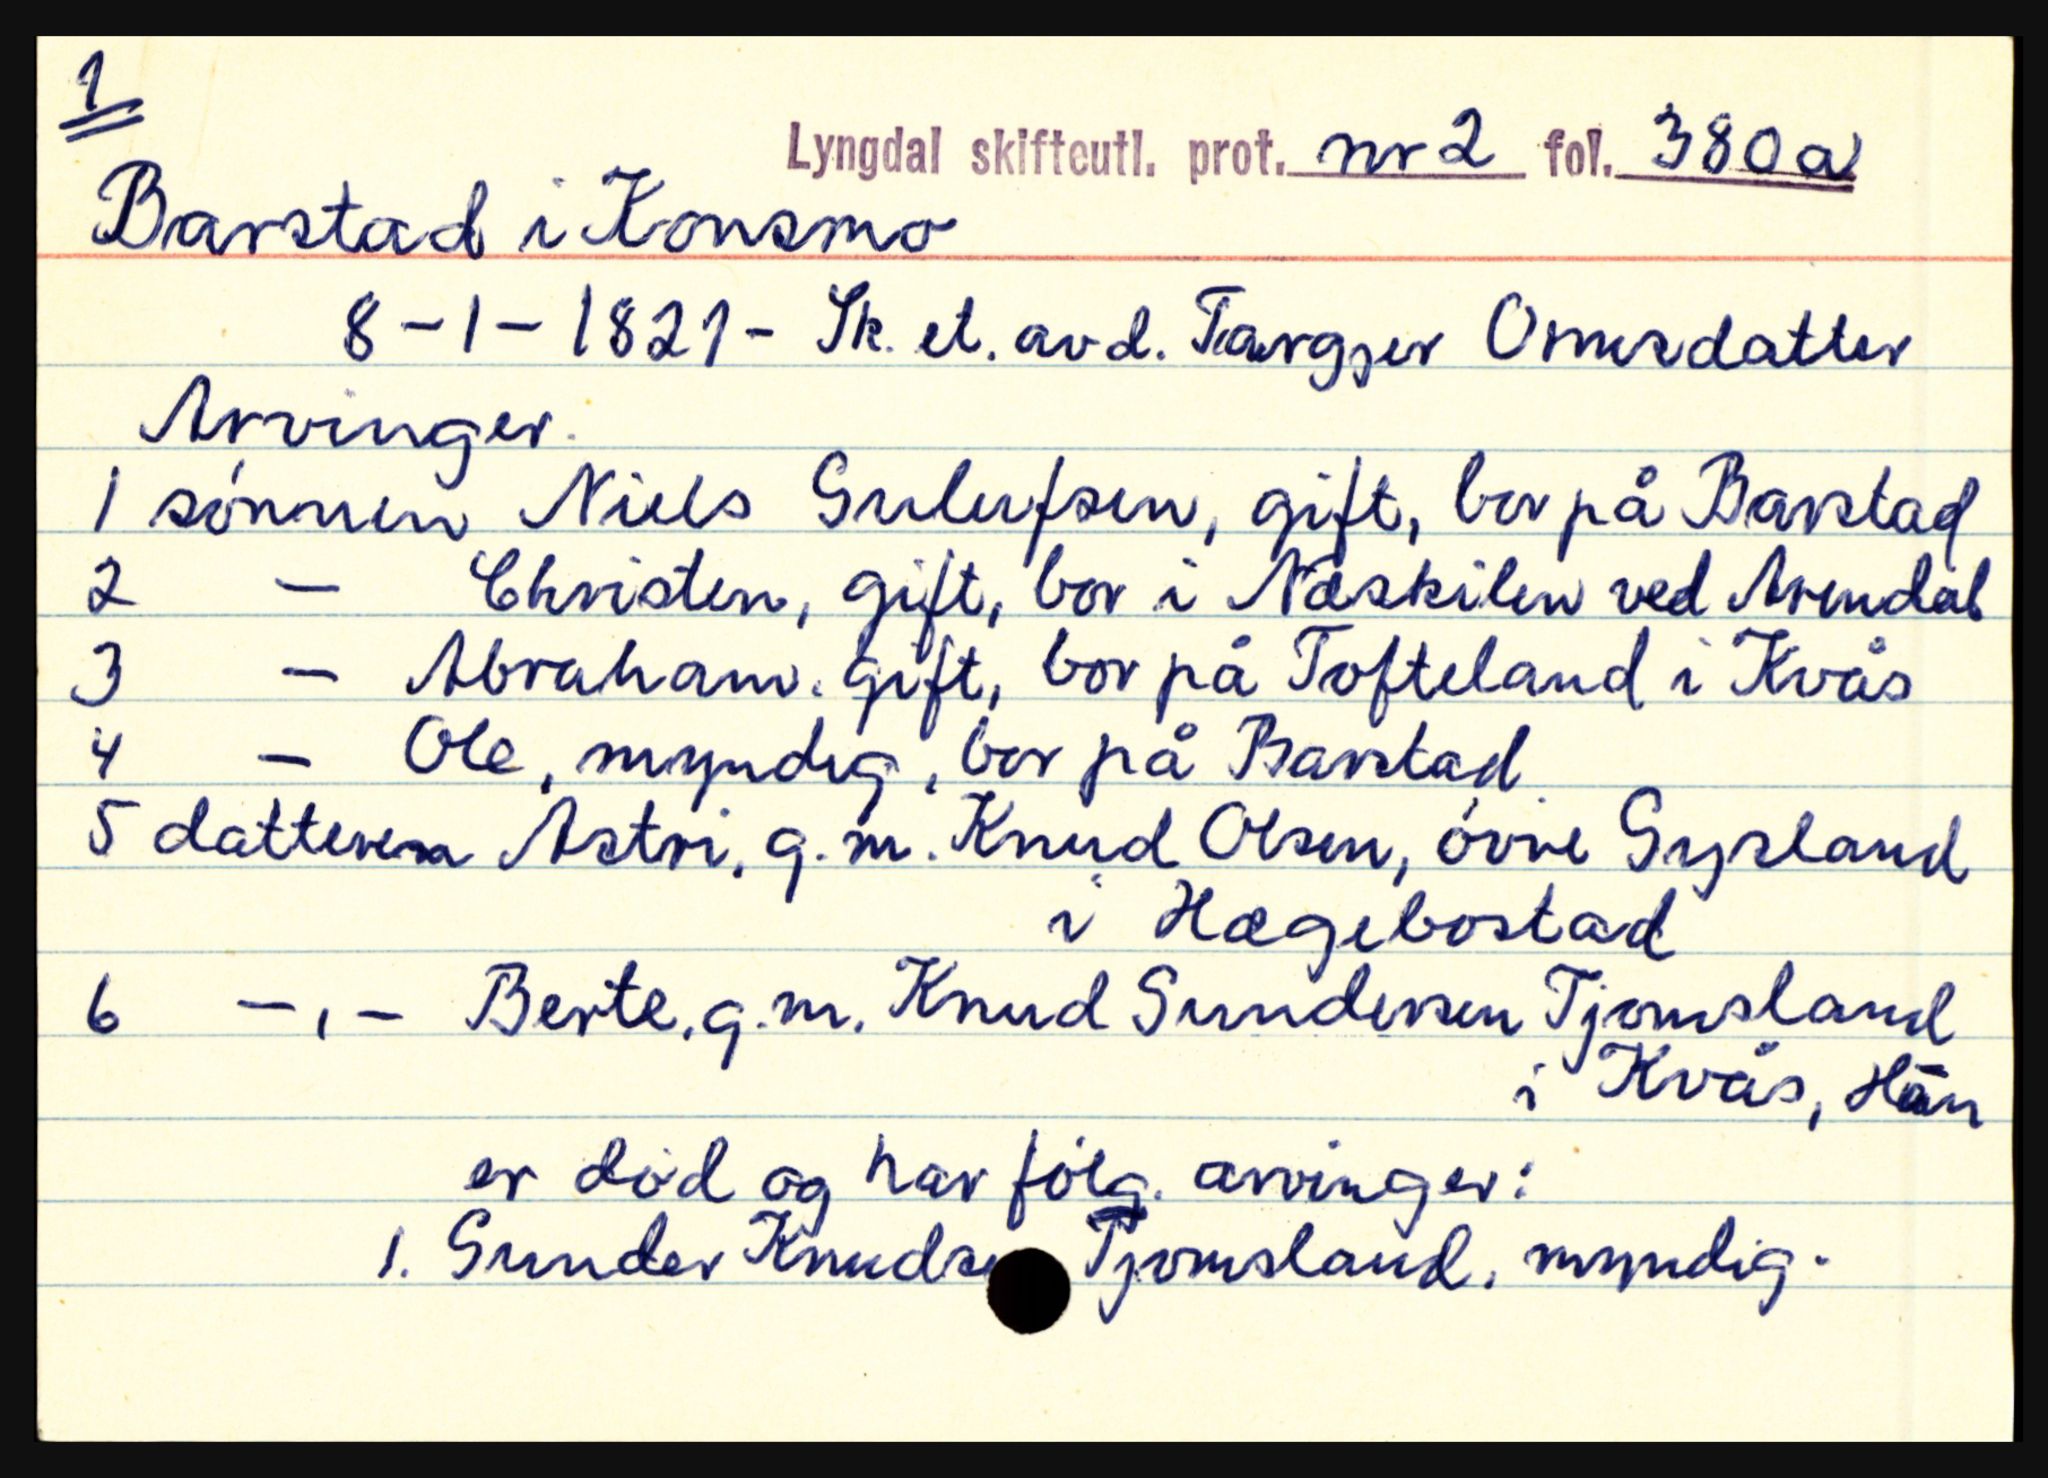 1
Lyngdal skifteutl. prot. nr 2 fol. 380a
Barstad i Konsmo
8-1-1821- Sk. et. avd. Targjer Omusdatter
Arvinger.
1 sønnen Niels Gulufsen, gift, bor på Barstad
2 - Christen, gift, bor i Næskilen ved Arendal
3 - Abraham. gift, bor på Tofteland i Kvås
4 - Ole, myndig, bor på Barstad
5 datteren Astri, g.m. Knud Olsen, óvre Gysland
i Hægebostad
6 -,- Berte, g.m. Knud Gundersen Tjomsland
i Kvås, Hun
er død og har følg. arvinger:
1. Gunder Knudsen Tjomsland, myndig.